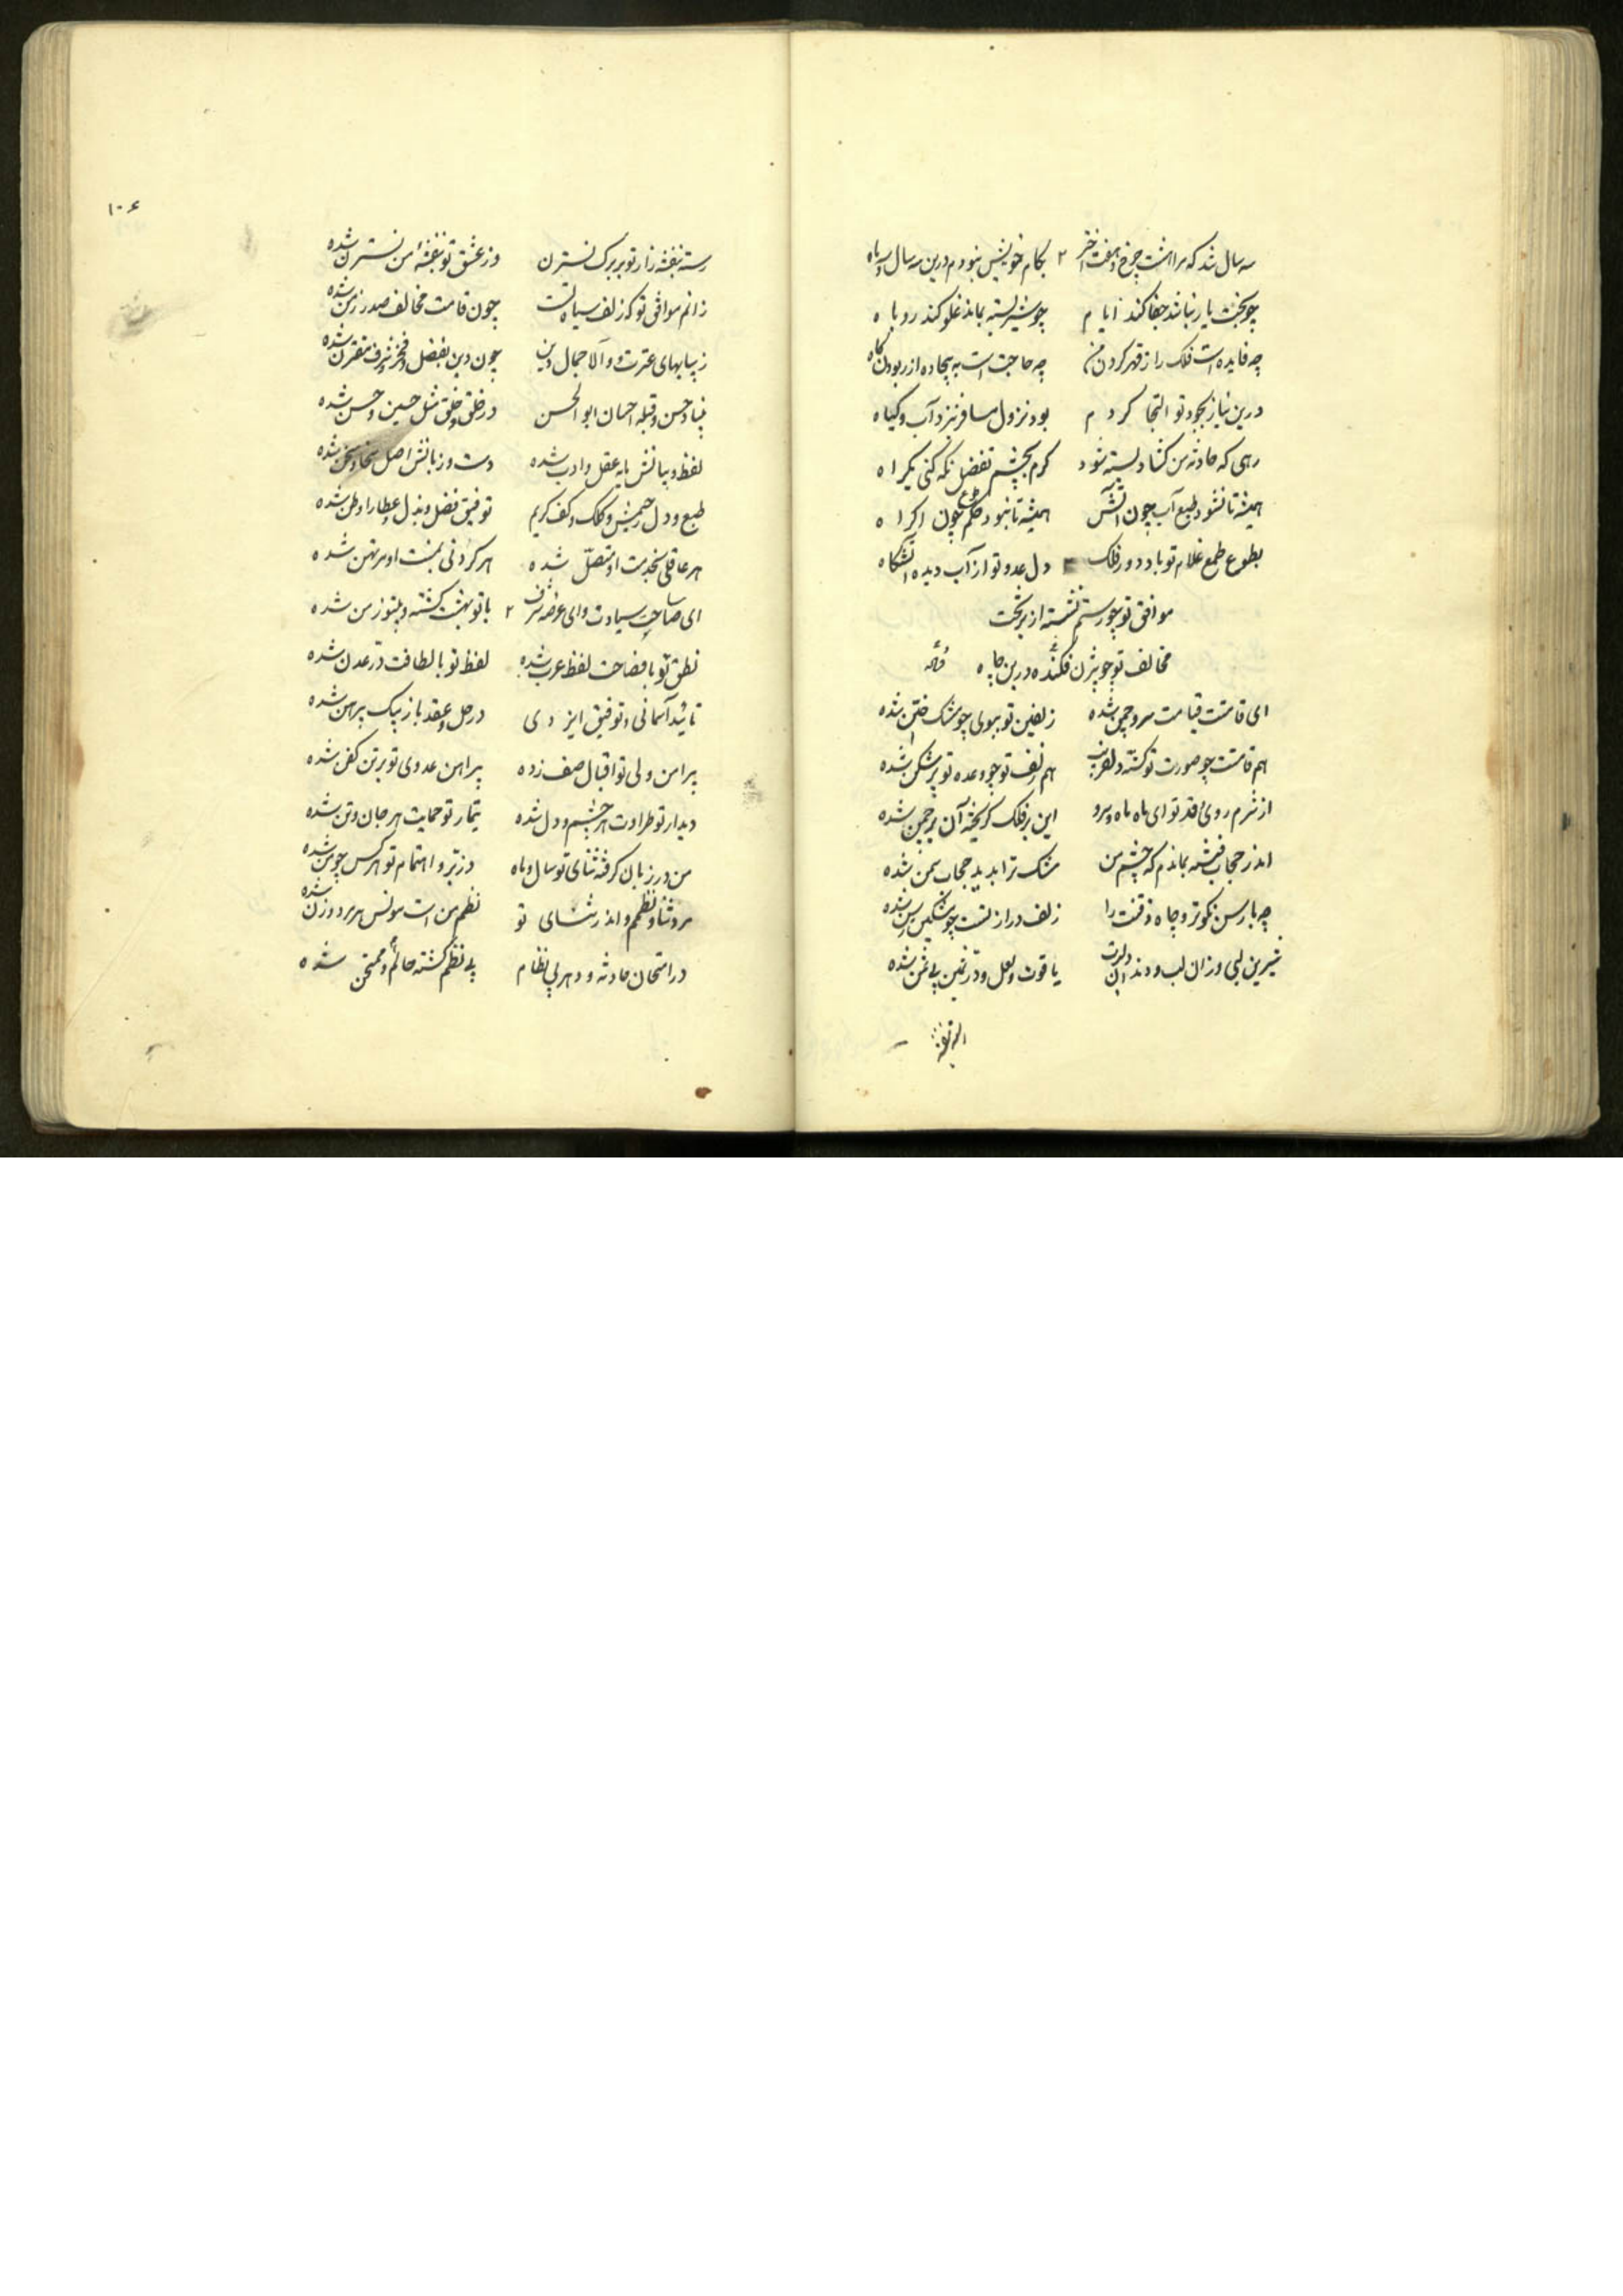 سه سال شد که مرا هشت چرخ و هفت اختر ۲ بکام خویش نبودم درین سه سال و سه ماه
چو بخت یار نباشد جفا کند ایام چو شیر بسته بماند غلو کند روباه
چه فایده است فلک را ز قهر کردن من چه حاجت است به بیجاده از ربودن کاه
درین نیاز بجود تو التجا کردم بود نزول مسافر بنزد آب و کیاه
رهی که حادثه من کشاد بسته شود کرم بچشم تفضل نکه کنی یکراه
همیشه تا نشود طبع آب چون آتش همیشه تا نبود حکم طوع چون اکراه
بطوع طمع غلام تو باد دور فلک دل عدو تو از آب دیده آتشکاه
موافق تو چو رستم نشسته از بر تخت
مخالف تو چو بیژن فکنده در بن چاه وله
ای قامتت قیامت سرو چمن شده زلفین تو ببوی چو مشک ختن شده
هم قامتت چو صورت تو کشته دلفریب هم زلف تو چو وعده تو پرشکن شده
از شرم روی و قد تو ای ماه ماه و سرو این بر فلک کریخته آن در چمن شده
اندر حجاب فتنه بماندم که چشم من مشک ترا بدید حجاب سمن شده
چه با رسن نکوتر و چاه ذقنت را زلف دراز تست چو مشکین رسن شده
شیرین لبی و زان لب و دندان دلبرت یاقوت و لعل و در ثمین بی ثمن شده
رسته بنفشه زار تو بر برک نسترن
۱۰۶
رسته بنفشه زار تو بر برک نسترن وز عشق تو بنفشه من نسترن شده
زانم موافق تو که زلف سیاه تست چون قامت مخالف صدر زمن شده
زیبا بهای عترت و والا جمال دین چون دین بفضل و فخر و شرف مقترن شده
بنیاد حسن و قبله احسان ابو الحسن در خلق و خلق مثل حسین و حسن شده
لفظ و بیانش پایه عقل و ادب شده دست و زبانش اصل سخا و سخن شده
طبع و دل رحیمش و کلک و کف کریم توفیق فضل و بذل و عطا را وطن شده
هر عاقلی بخدمت او متصل شده هر کردنی بمنت او مرتهن شده
ای صاحب سیادت وای عرضه شرف ۲ با تو بهشت کشته و بیتو زمن شده
نطق تو با فصاحت لفظ عرب شده لفظ تو با لطافت در عدن شده
تائید آسمانی و توفیق ایزدی در حل و عقد با تو بیک پیرهن شده
پیرامن ولی تو اقبال صف زده پیراهن عدوی تو بر تن کفن شده
دیدار تو طراوت هر چشم و دل شده تیمار تو حمایت هر جان و تن شده
من در زبان کرفته ثنای تو سال و ماه وز بر و اهتمام تو هر کس چو من شده
نظم من است مونس هر مرد و زن شده
در امتحان حادثه و دهر بی نظام بی نظم کشته حالم و ممتحن شده